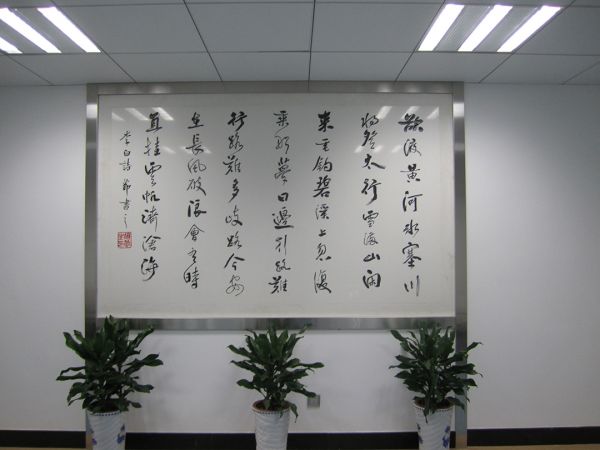 欲渡黄河冰塞川
将登太行雪满山闲
来垂钓碧溪上忽復
乘舟夢日邊行路難
行路難多歧路今安
在長風破浪會有時
直挂雲帆濟滄海
李白詩 節書之